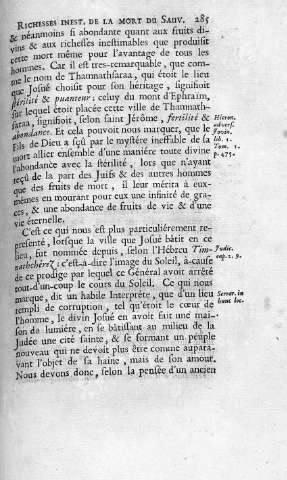 RICHESSES INEST. DE LA MORT DU SAUV. 285
& néanmoins si abondante quant aux fruits di-
vins & aux richesses inestimables que produisit
cette mort même pour l'avantage de tous les
hommes. Car il est tres-remarquable, que com-
me le nom de Thamnathsaraa, qui étoit le lieu
que Josué choisit pour son héritage, signifioit
stérilité & puanteur; celuy du mont d'Ephraïm,
sur lequel étoit placée cette ville de Thamnath-
saraa, signifioit, selon saint Jérôme, fertilité &
abondance. Et cela pouvoit nous marquer, que le
Fils de Dieu a sçû par le mystère ineffable de sa
mort allier ensemble d'une manière toute divine
l'abondance avec la stérilité, lors que n'ayant
reçû de la part des Juifs & des autres hommes
que des fruits de mort, il leur mérita à eux-
mêmes en mourant pour eux une infinité de gra-
ces, & une abondance de fruits de vie & d'une
vie éternelle.
C'est ce qui nous est plus particulièrement re-
présenté, lorsque la ville que Josué bâtit en ce
lieu, fut nommée depuis, selon l'Hébreu Tim-
nathchérez; c'est-à-dire l'image du Soleil, à-cause
de ce prodige par lequel ce Général avoit arrêté
tout-d'un-coup le cours du Soleil. Ce qui nous
marque, dit un habile Interprète, que d'un lieu
rempli de corruption, tel qu'étoit le cœur de
l'homme, le divin Josué en avoit fait une mai-
son de lumière, en se bâtissant au milieu de la
Judée une cité sainte, & se formant un peuple
nouveau qui ne devoit plus être comme aupara-
vant l'objet de sa haine, mais de son amour.
Nous devons donc, selon la pensée d'un ancien
Hieron.
advers.
Jovin.
lib. 1.
Tom. 1.
p. 475.
Judic.
cap. 2. 9.
Serrar. in
hunc loc.